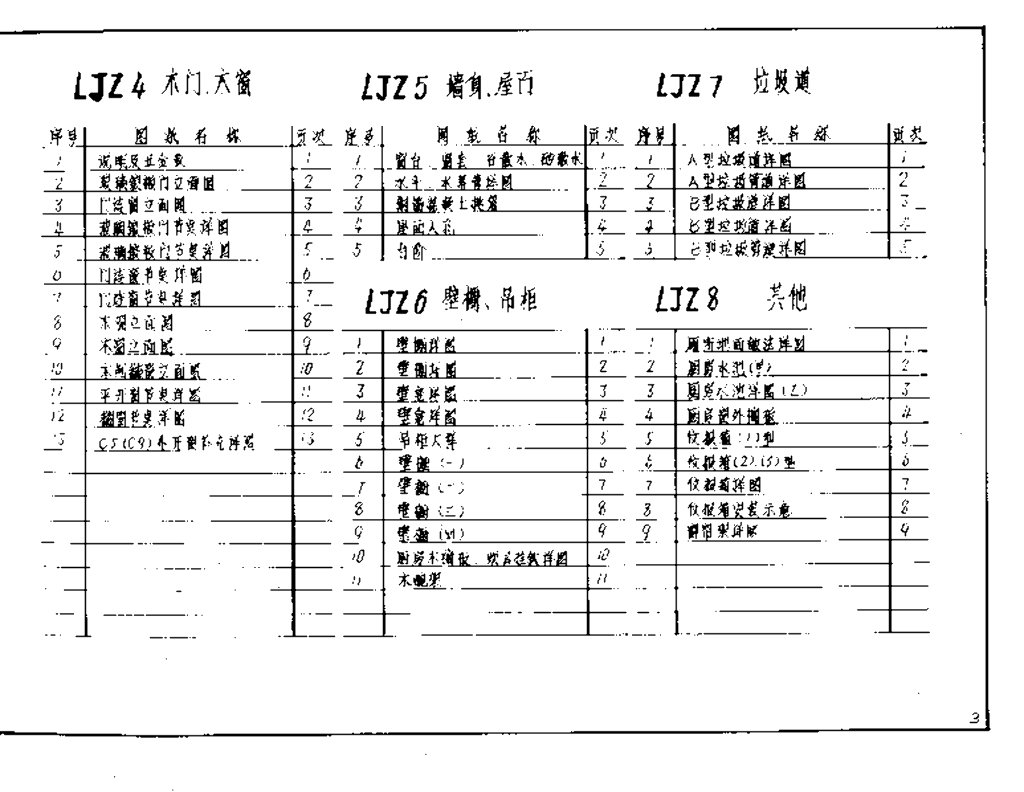 LJZ4 木门、木窗
序号 图纸名称 页次
1 说明及五金表 1
2 玻璃镶板门立面图 2
3 门连窗立面图 3
4 玻璃镶板门节点详图 4
5 玻璃镶板门节点详图 5
6 门连窗节点详图 6
7 门连窗节点详图 7
8 木窗立面图 8
9 木窗立面图 9
10 立面图 10
11 平开窗节点详图 11
12 翻窗节点详图 12
13 C5(C9)外开窗补充详图 13
LJZ5 墙身、屋面
序号 图纸名称 页次
1 窗台、窗套、台散水、砖散水 1
2 水斗、水落管详图 2
3 钢筋混凝土挑檐 3
4 屋面人孔 4
5 台阶 5
LJZ6 壁橱、吊柜
1 壁橱详图 1
2 壁橱详图 2
3 壁龛详图 3
4 壁龛详图 4
5 吊柜大样 5
6 壁橱(一) 6
7 壁橱(二) 7
8 壁橱(三) 8
9 壁橱(四) 9
10 厨房木搁板、详图 10
11 木碗架 11
LJZ7 垃圾道
序号 图纸名称 页次
1 A型垃圾道详图 1
2 A型垃圾道详图 2
3 B型垃圾道详图 3
4 B型垃圾道详图 4
5 B型垃圾道详图 5
LJZ8 其他
1 厕所地面做法详图 1
2 厨房水池(甲) 2
3 厨房水池详图(乙) 3
4 厨房窗外搁板 4
5 信报箱(1)型 5
6 信报箱(2)、(3)型 6
7 信报箱详图 7
8 信报箱安装示意 8
9 窗帘架详图 9
3